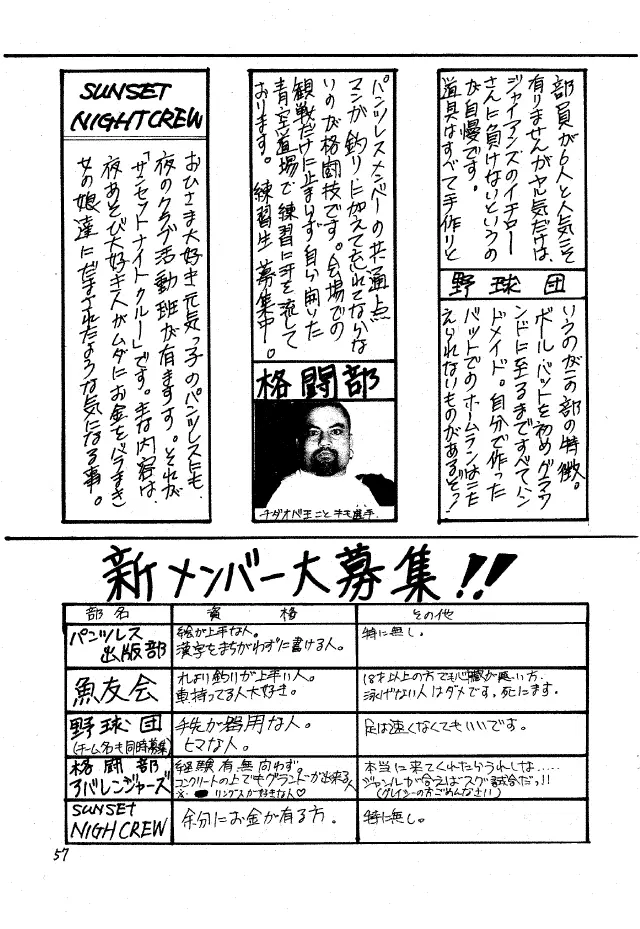 部員が6人と人気こそ
有りませんがヤル気だけは、
ジャイアンズのイチロー
さんに負けないというの
が自慢です。
道具はすべて手作りと
野球団
いうのがこの部の特徴。
ボール、バットを初めグラウ
ンドに至るまですべてハン
ドメイド。自分で作った
バットでのホームランはこた
えられないものがあるぞっ!
パンツレスメンバーの共通点
マンが、釣りに加えて忘れてならな
いのが格闘技です。会場での
観戦だけに止まらず自ら開いた
青空道場で練習に汗を流して
おります。練習生募集中。
格闘部
チダオベ王こと
選手
SUNSET
NIGHTCREW
おひさま大好き元気っ子のパンツレスにも
夜のクラブ活動班が有ます。それが
「サンセットナイトクルー」です。主な内容は、
夜あそび大好き人がムダにお金をバラまき
女の娘達にだまされたような気になる事。
新メンバー大募集!!
部名 資格 その他
パンツレス出版部 絵が上手な人。 特に無し。
漢字をまちがわずに書ける人。
魚友会 れより釣りが上手い人。 18才以上の方でも心臓が悪い方、
車持ってる人大好き。 泳げない人はダメです。死にます。
野球団 手先が器用な人。 足は速くなくてもいいです。
(チーム名も同時募集) ヒマな人。
格闘部 経験有無問わず。 本当に来てくれたらうれしな.....
アバレンジャーズ コンクリートの上でもグランドーが出来る人 ジャンルが合えばスグ試合だっ!!
※ リングスが好きな人♡ (グレイシーの方ごめんなさい)
SUNSET
NIGHCREW 余分にお金が有る方。 特に無し。
57